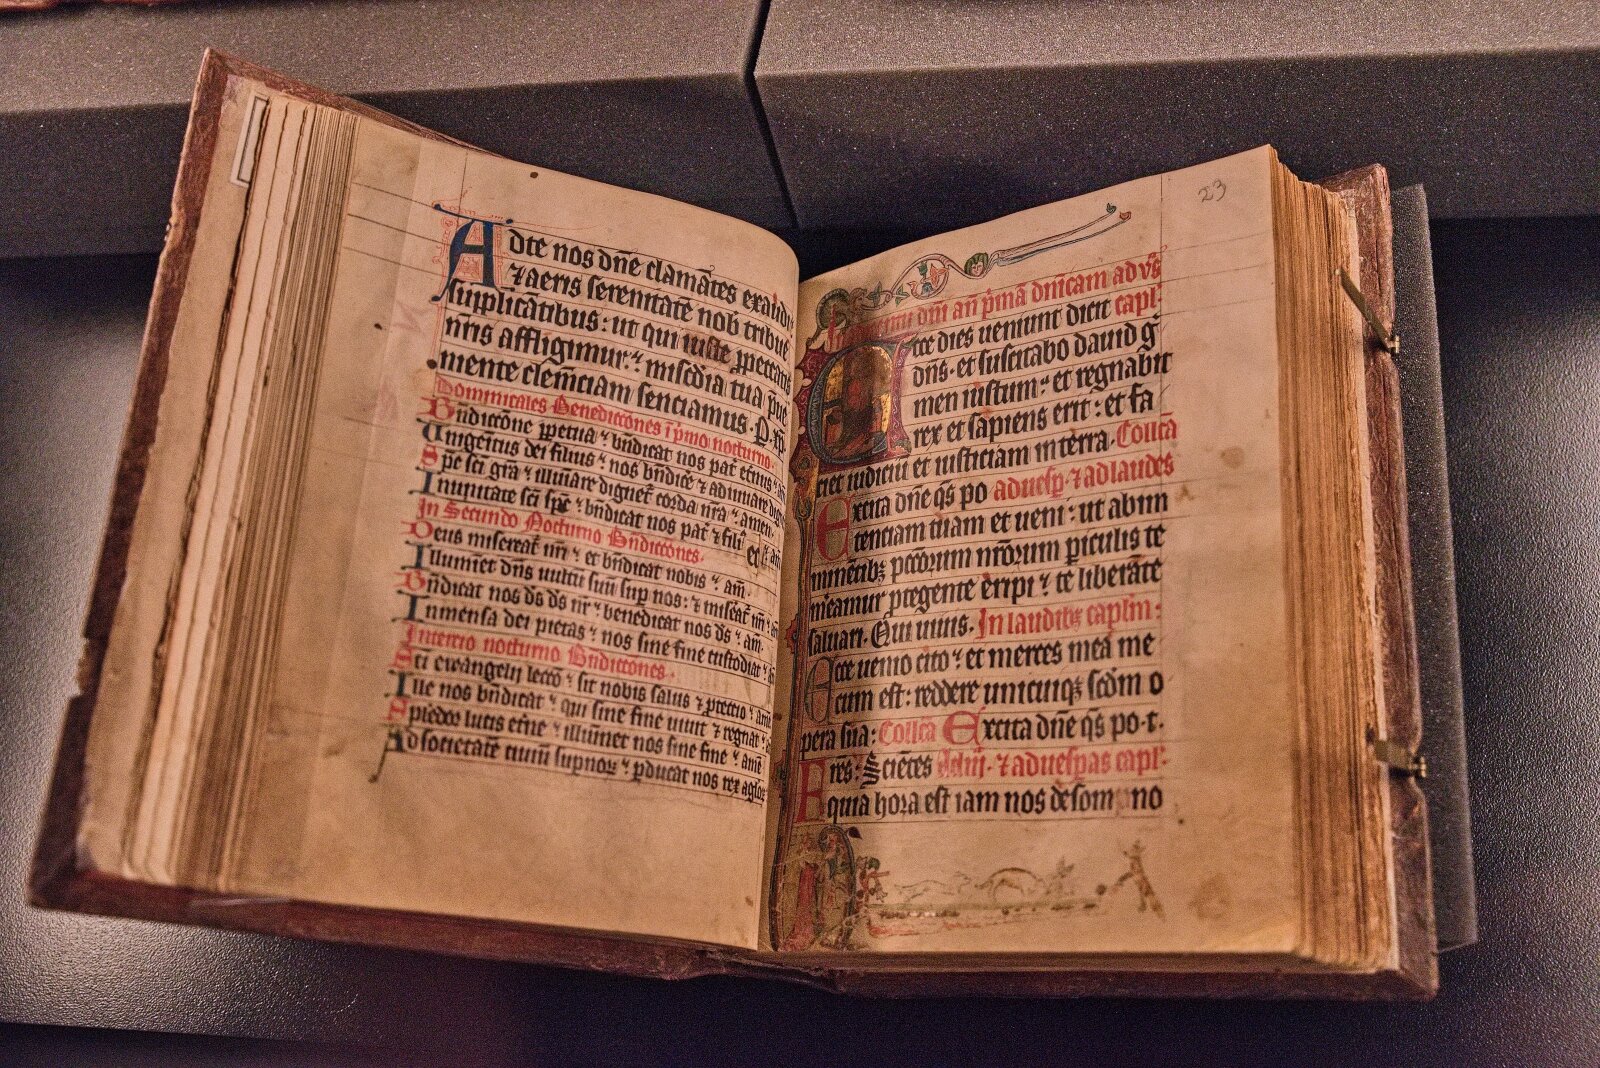 Adte nos dn̄e clamātes exaudi
⁊ aeris serenitatē nob tribue
supplicātibus: ut qui iuste ꝓpeccatis
nr̄is affligimur: mis̄cdia tua p̄ue
niente clem̄ciam senciamus. P. xp̄m
Dominicales Benedictōnes ī pͥmo nocturno.
Bn̄dictōne ꝑpetua: bn̄dicat nos pat̄ et̄nus
Vnigenitus dei filius: nos bn̄dice͛ ⁊ adiuuare dig
Sp̄c sc̄i gr̄a: illuīare dignet͛ corda nr̄a: amen
In unitate sc̄i sp̄c: bn̄dicat nos pat͛ ⁊ fili et
In Secundo Nocturno Bn̄dictōnes.
Deus misereat͛ nr̄i: et bn̄dicat nobis: am̄.
Illuminet dn̄s uultū suū sup nos: ⁊ mis̄eat͛ nr̄i
Bn̄dicat nos ds̄ ds̄ nr̄: benedicat nos ds̄: am̄.
Inmensa dei pietas: nos sine fine custodiat:
In tercio nocturno Bn̄dictōnes.
Sc̄i ewangelij lecc̄o: sit nobis salus ⁊ ꝓtectio: am̄
Ille nos bn̄dicat: qui sine fine uiuit ⁊ regnat:
Splēdor lucis et̄ne: illumīet nos sine fine: am̄e
Ad societatē ciuiū supnoꝝ: ꝑducat nos rex agl̄oꝝ
23
dn̄i an̄ pͥmā dn̄icam ad vs̄
Ecce dies ueniunt dicit capl̄.
dn̄s. et suscitabo dauid g͛
men iustum: et regnabit
rex et sapiens erit: et fa
ciet iudiciū et iusticiam in terra. Collc̄a
Excita dn̄e q̄s po aduesp̄. ⁊ adlaudes
tenciam tuam et ueni: ut ab im
minētibꝫ pcc̄orum nr̄orum piculis te
m̄eamur ꝓtegente eripi: te liberāte
saluari. Qui uiuis. In laudibꝫ caplm̄:
Ecce uenio cito: et merces mea me
cum est: reddere unicuiqꝫ sc̄dm o
pera sua: Collc̄a Excita dn̄e q̄s po.t.
Fr̄es: Sciētes Adiij. ⁊ aduesp̄as capl̄.
quia hora est iam nos de somno